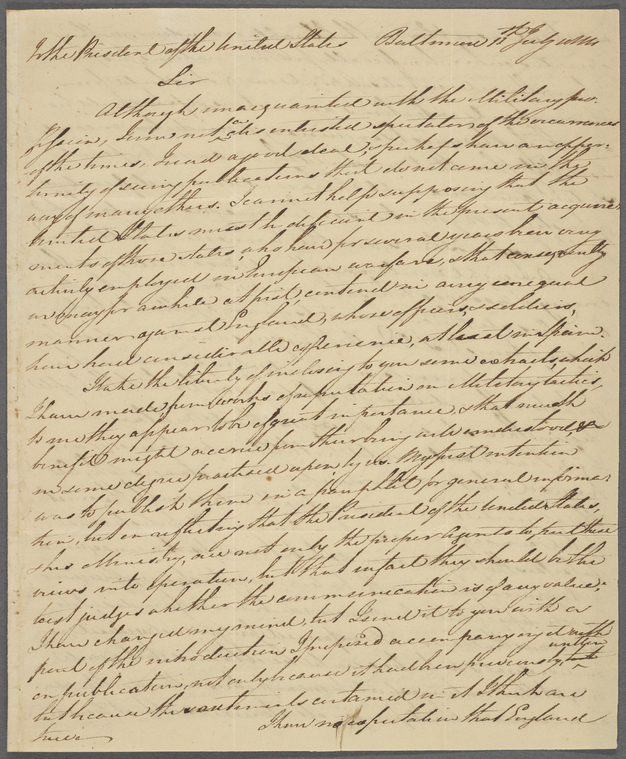 To the President of the United States Baltimore July 1814
Sir
Although unacquainted with the Military pro-
fession, I am not a disinterested spectator of the occurrences
of the times, I read a good deal, & perhaps have an oppor-
tunity of seeing publications that do not come in the
way of many others. I cannot help supposing that the
United States must be deficient in the present acquire-
ments of those states, who have for several years been very
actively employed in European warfare, & that consequently
we may for awhile at first contend in a very unequal
manner against England, whose officers, & soldiers,
have had considerable experience, at least in Spain.
I take the liberty of inclosing to you some extracts, which
I have made, from works of reputation on Military tactics,
to me they appear to be of great importance, & that much
benefit might accrue from their being well understood, &
in some degree practised upon by us. My first intention
was to publish them in a pamphlet for general informa-
tion, but on reflecting that the President of the United States,
& his Ministry, are not only the proper Agents to put these
views into operation, but that in fact they should be the
best judges whether the communication is of any value;
I have changed my mind, but I send it to you with a
part of the introduction I proposed accompanying it with
on publication, not only because it had been previously written
but because the sentiments contained in it I think are
true.
I have no expectation that England